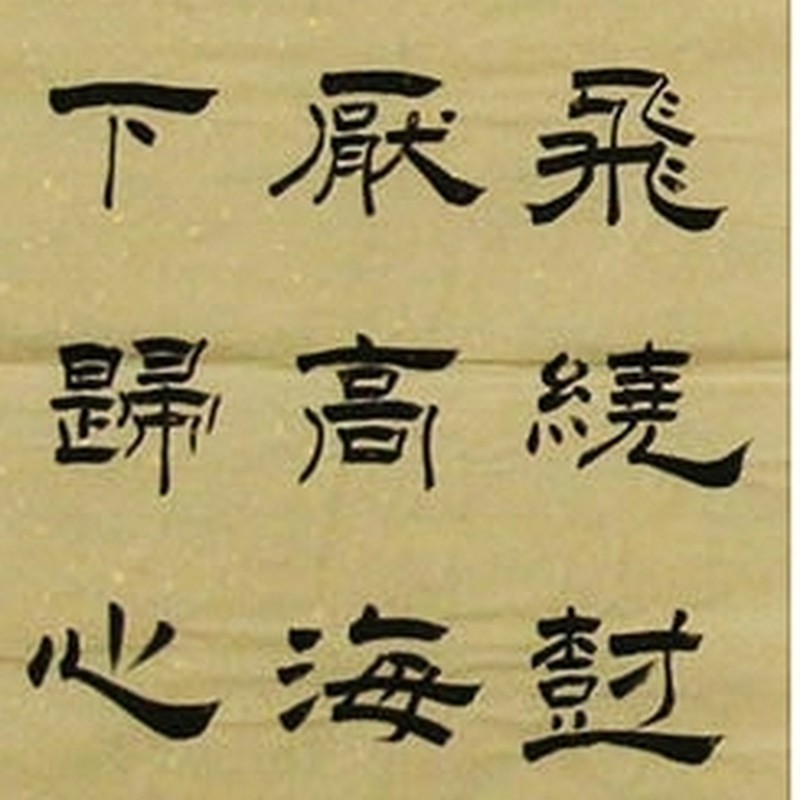 飛繞樹
厭高海
下歸心